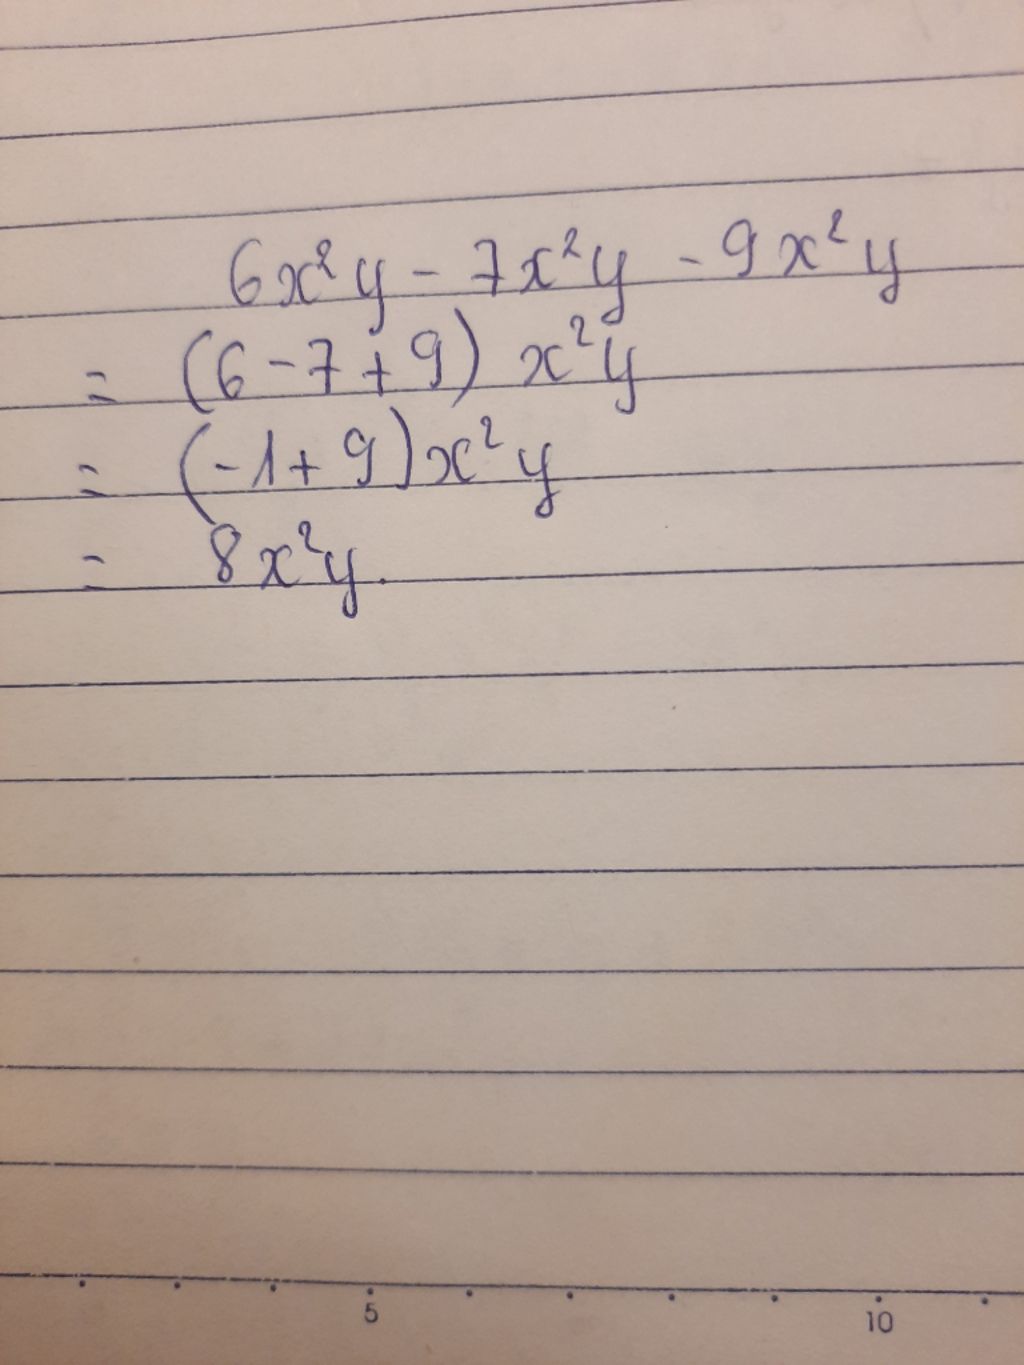 6x²y - 7x²y - 9x²y
= (6 - 7 + 9) x²y
= (-1 + 9) x²y
= 8x²y.
5 10